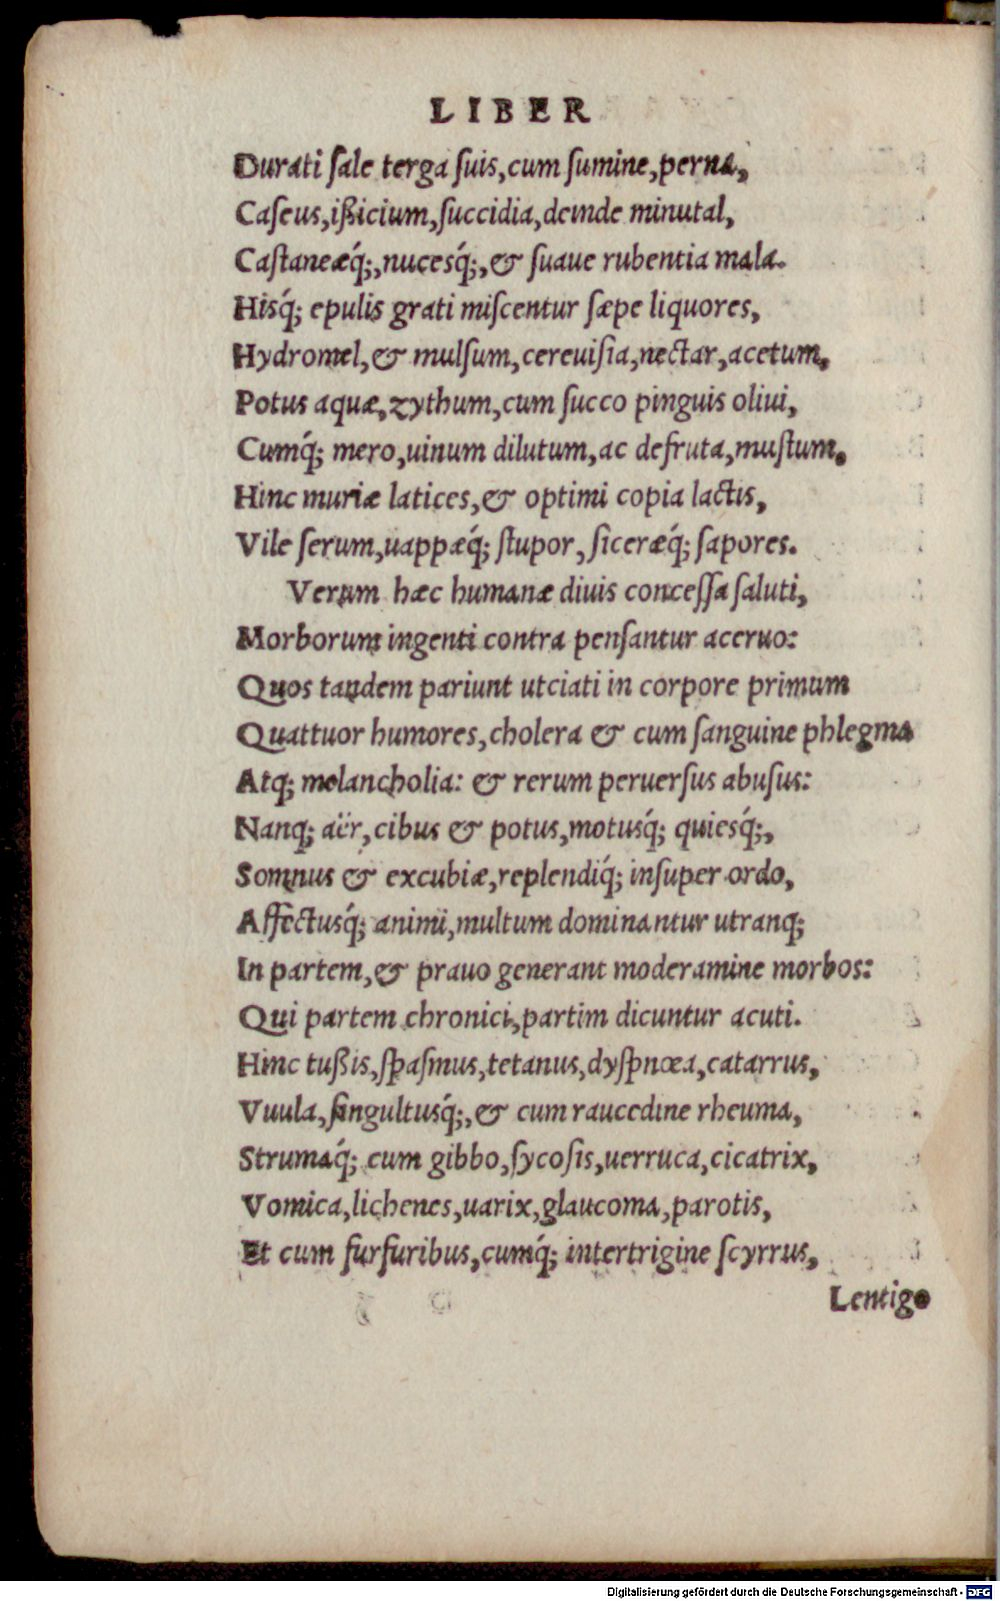 LIBER
Durati ſale terga ſuis,cum ſumine,perna,
Caſeus,ißicium,ſuccidia,deinde minutal,
Caſtaneæq́;,nucesq́;,& ſuaue rubentia mala.
Hisq́; epulis grati miſcentur ſæpe liquores,
Hydromel,& mulſum,cereuiſia,nectar,acetum,
Potus aquæ,zythum,cum ſucco pinguis oliui,
Cumq́; mero,uinum dilutum,ac defruta,muſtum.
Hinc muriæ latices,& optimi copia lactis,
Vile ſerum,uappæq́; ſtupor, ſiceræq́; ſapores.
Verum hæc humanæ diuis conceſſa ſaluti,
Morborum ingenti contra penſantur aceruo:
Quos tandem pariunt utciati in corpore primum
Quattuor humores,cholera & cum ſanguine phlegma
Atq; melancholia: & rerum peruerſus abuſus:
Nanq; aër,cibus & potus,motusq́; quiesq́;,
Somnus & excubiæ,replendiq́; inſuper ordo,
Affectusq́; animi,multum dominantur utranq;
In partem,& prauo generant moderamine morbos:
Qui partem chronici,partim dicuntur acuti.
Hinc tußis,ſpaſmus,tetanus,dyſpnœa,catarrus,
Vuula,ſingultusq́;,& cum raucedine rheuma,
Strumaq́; cum gibbo,ſycoſis,uerruca,cicatrix,
Vomica,lichenes,uarix,glaucoma,parotis,
Et cum furfuribus,cumq́; intertrigine ſcyrrus,
Lentigo
Digitalisierung gefördert durch die Deutsche Forschungsgemeinschaft - DFG